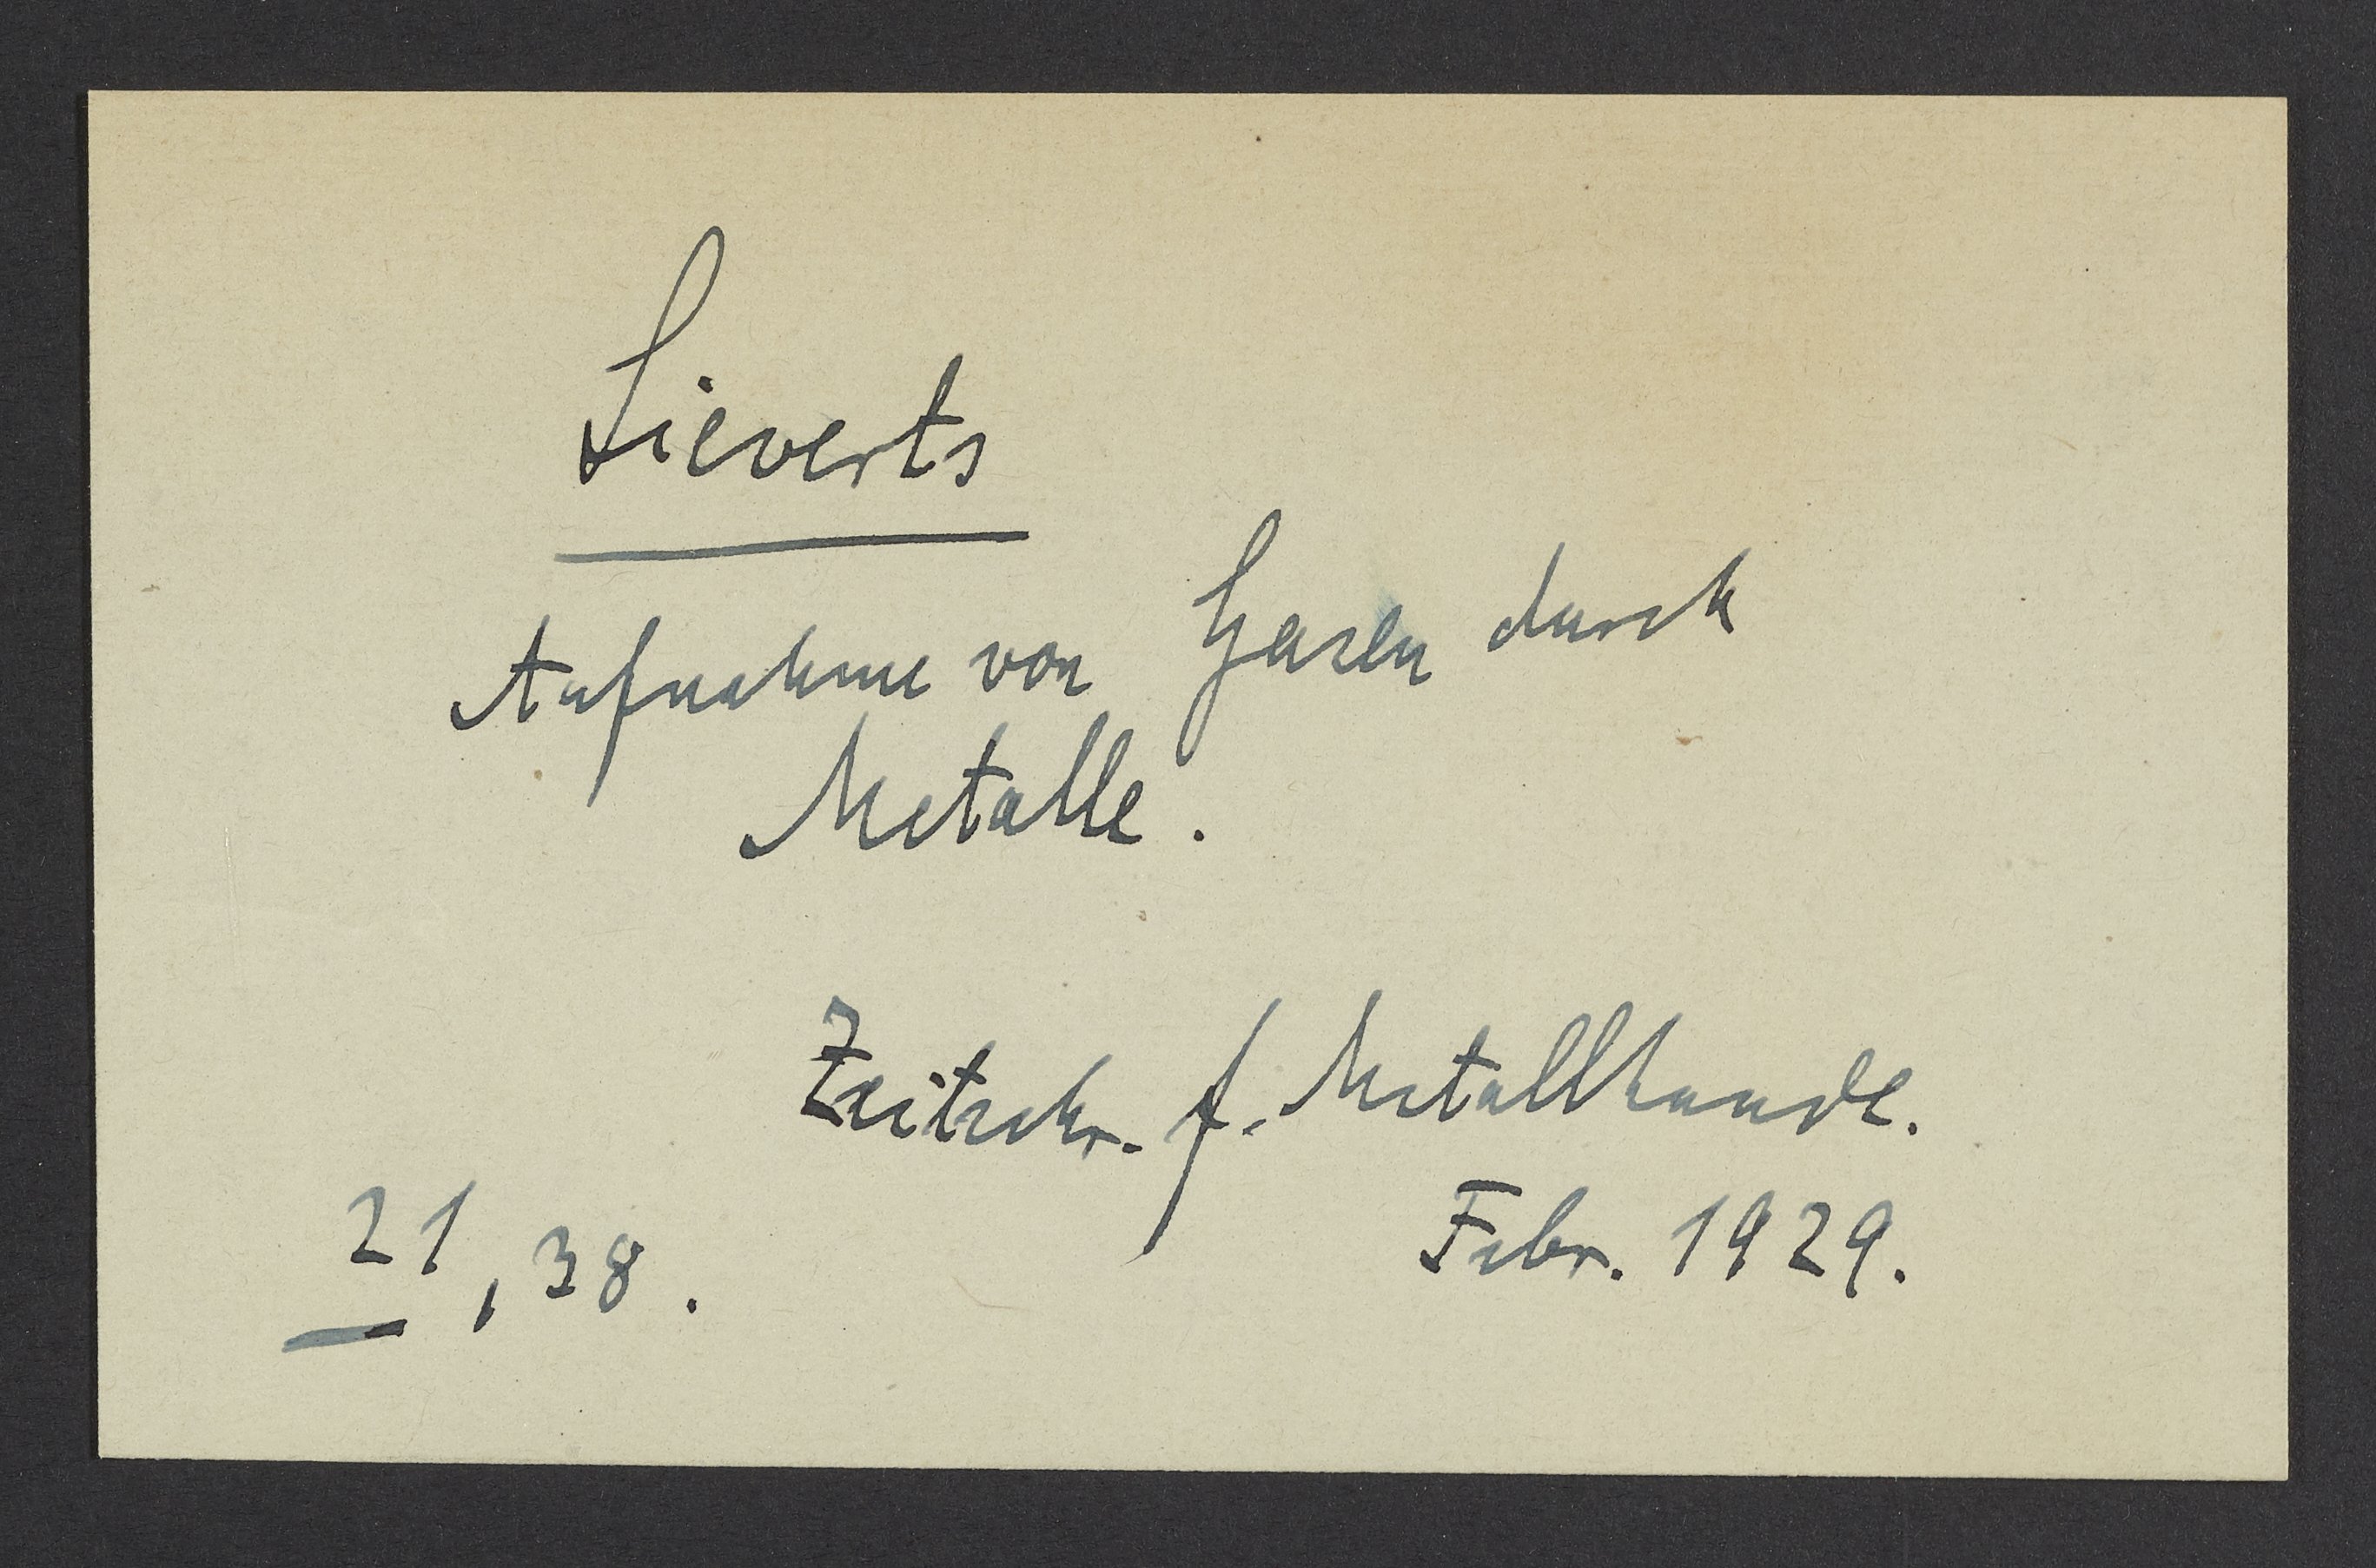 Sieverts
Aufnahme von Gasen durch
Metalle.
Zeitschr. f. Metallkunde.
Febr. 1929.
21, 38.